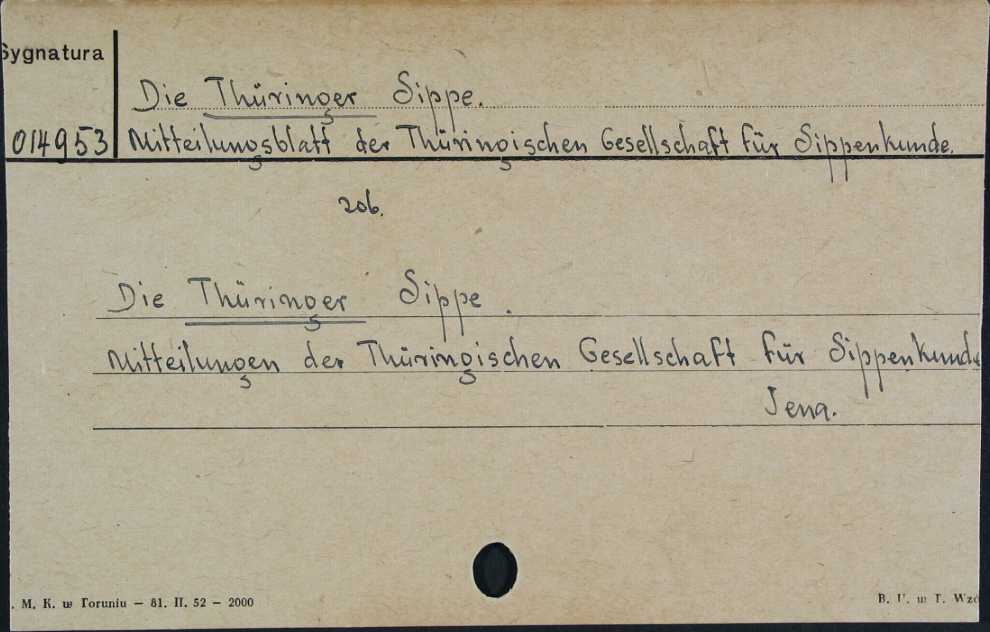 Sygnatura
Die Thüringer Sippe.
014953 Mitteilungsblatt der Thüringischen Gesellschaft für Sippenkunde.
zob.
Die Thüringer Sippe.
Mitteilungen der Thüringischen Gesellschaft für Sippenkunde
Jena.
. M. K. w Toruniu — 81. II. 52 — 2000
B. U. w T. Wzó